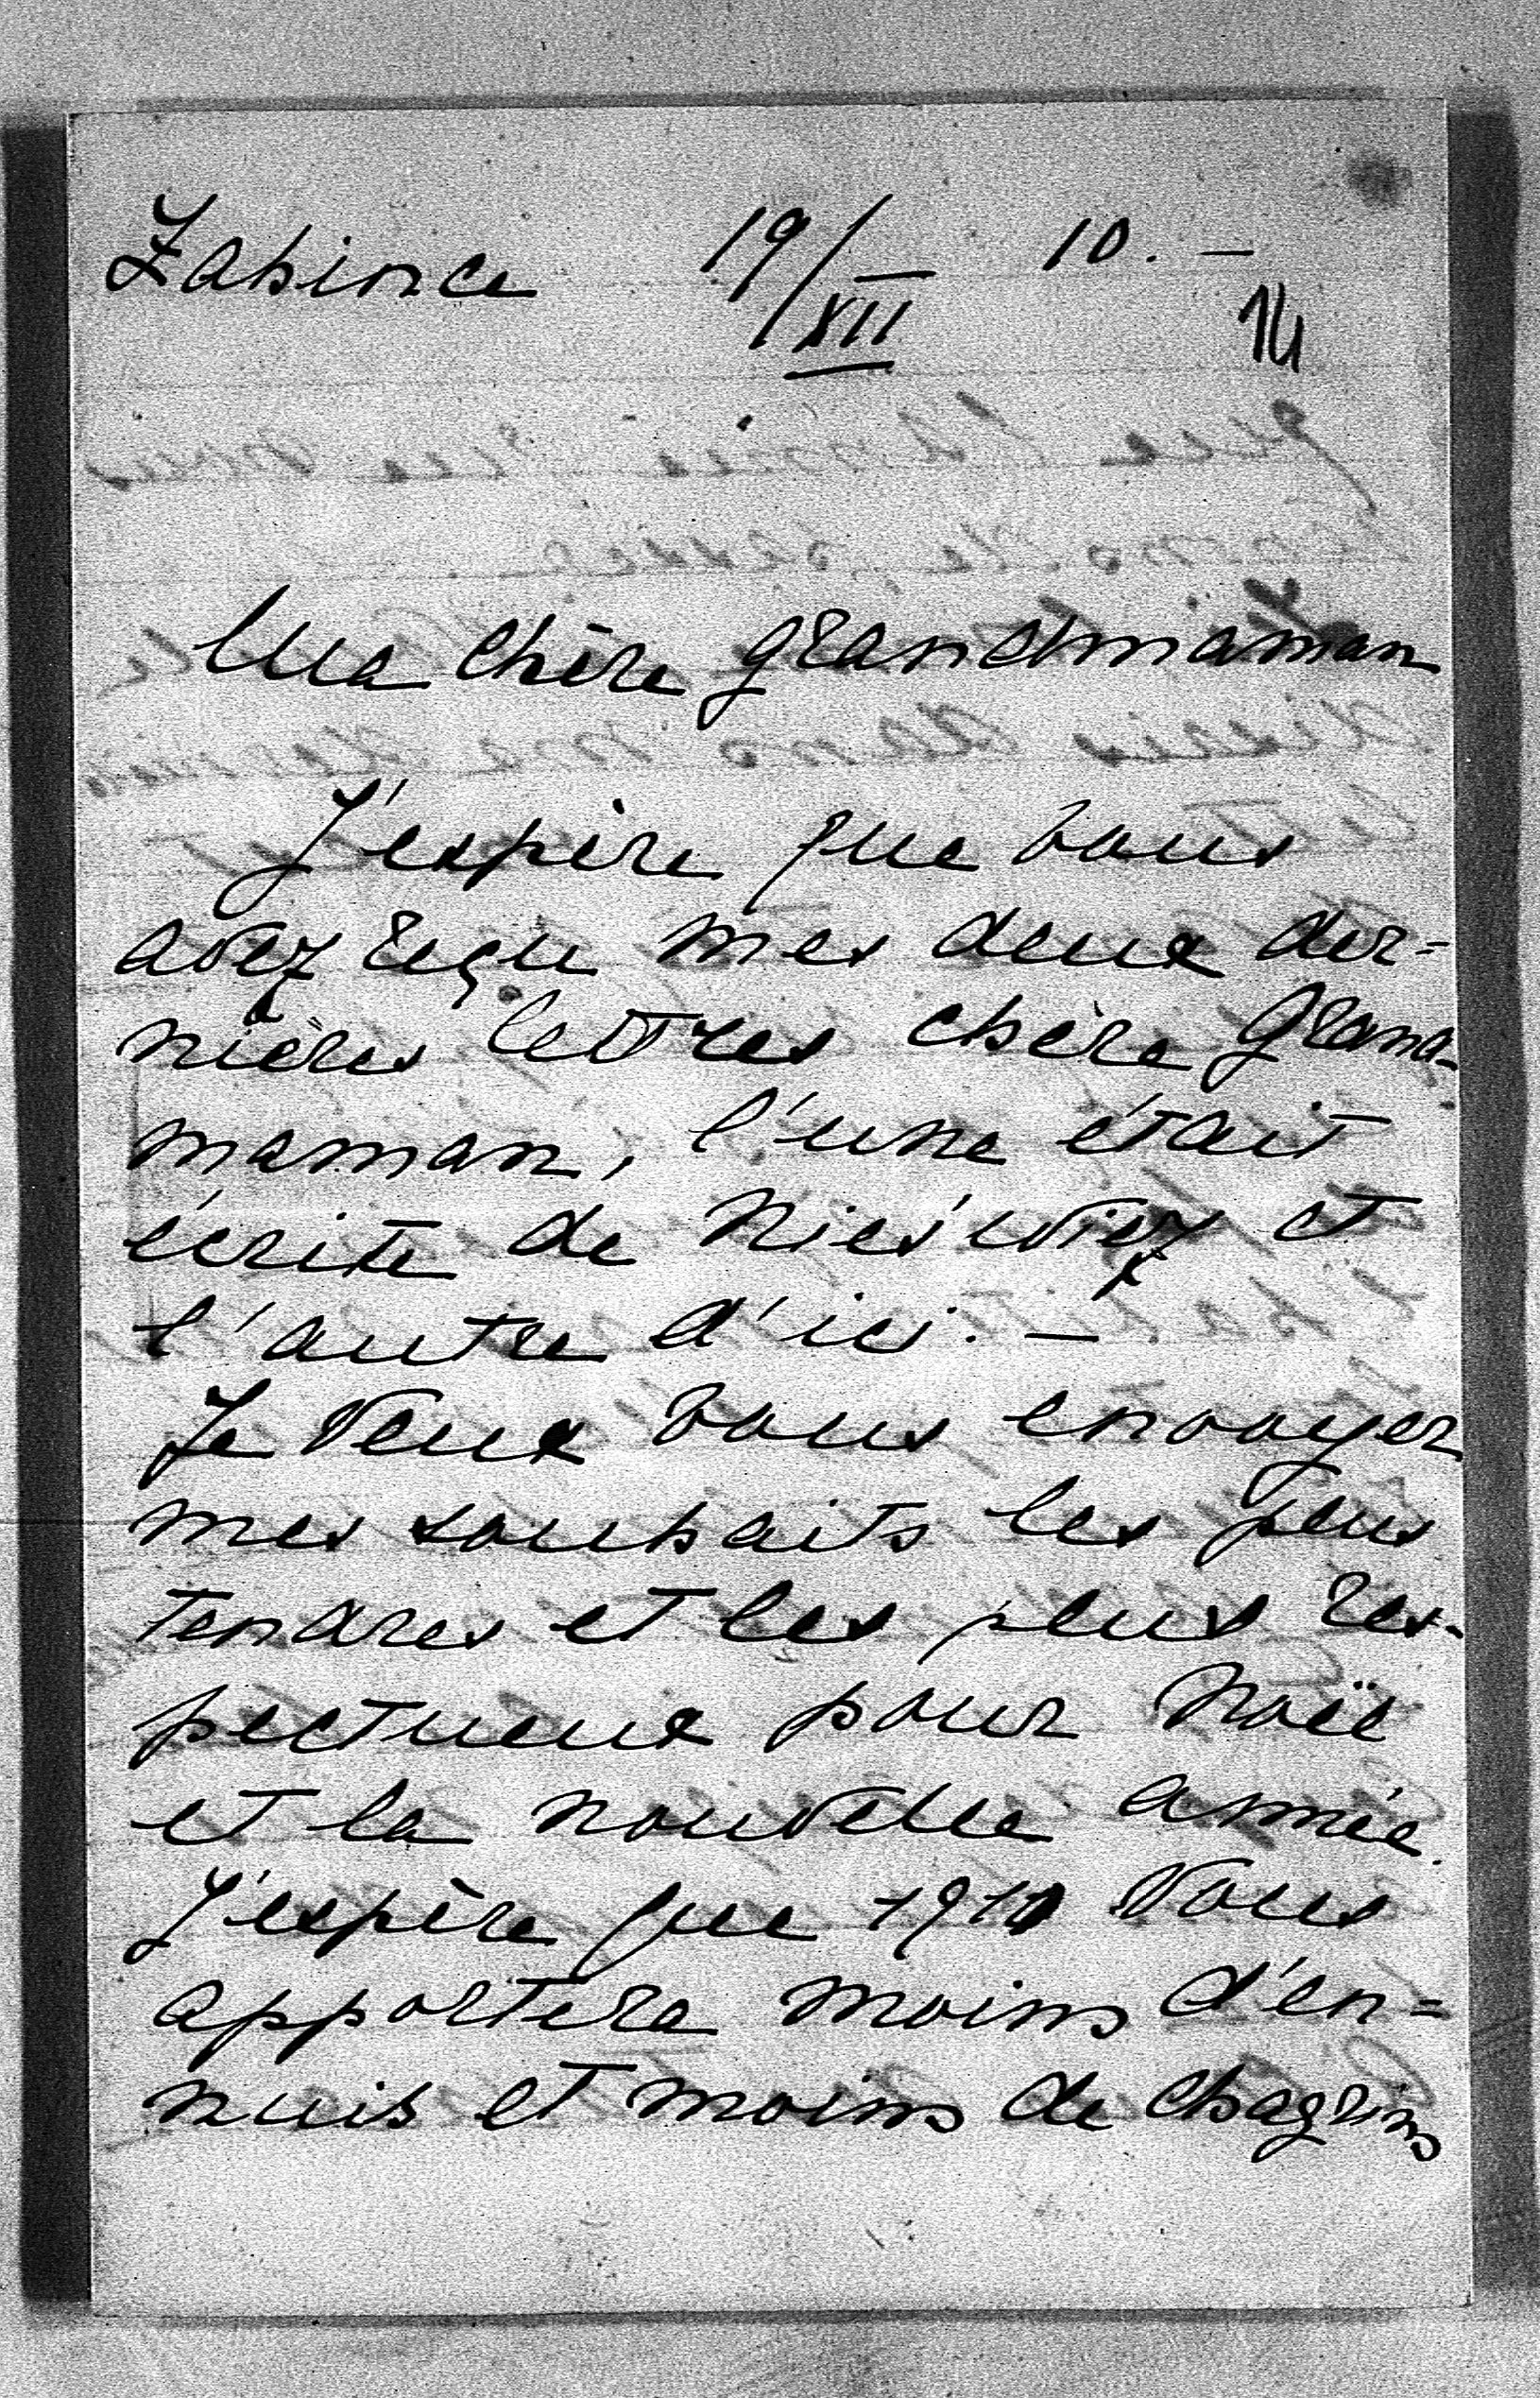 Zabince 19/XII 10. —
14
Ma chère grandmaman
J'espère que vous
avez reçu mes deux der=
nières lettres chère Grand-
maman, l'une était
écrite de Nieświez et
l'autre d'ici. —
Je veux vous envoyer
mes souhaits les plus
tendres et les plus res-
pectueux pour Noël
et la nouvelle année.
J'espère que 1911 vous
apportera moins d'en=
nuis et moins de chagrins